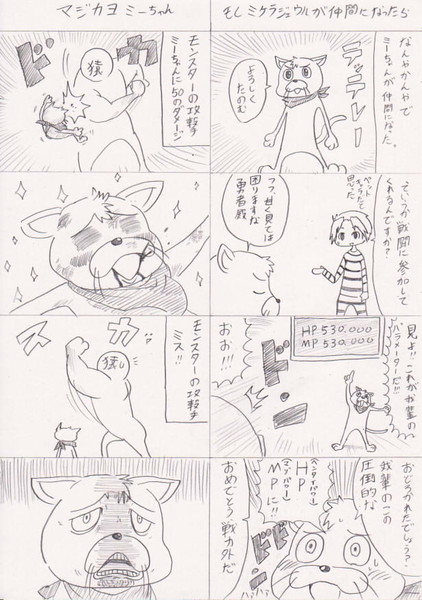 もしミケラジュウルが仲間になったら
なんやかんやで
ミーちゃんが仲間になった。
テッテレー
よろしく
たのむ
ていうか戦闘に参加して
くれるんですか?
ペット
キャラだと
思った
フフ、甘く見ては
困りますな
勇者殿
見よ!!これが我輩の
パラメーターだ!!!
HP530.000
MP530.000
おお!!!
おどろかれたでしょう?
我輩のこの
圧倒的な
ヘンタイパワー
HP
マゾパワー
MPに!!
おめでとう戦力外だ
マジカヨミーちゃん
モンスターの攻撃
ミーちゃんに50のダメージ
ドカッ
猿
モンスターの攻撃
ミス!!
スカッ
猿